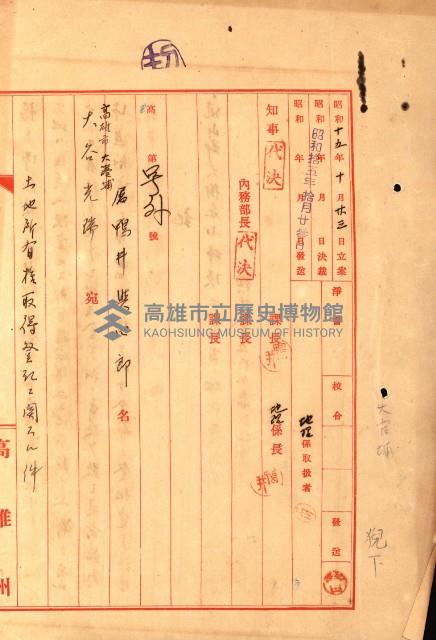 昭和十五年十月廿三日立案 淨書 校合 發送
昭和 年 月 日決裁
昭和拾五年拾月廿
昭和 年 月 日發送
地理係取扱者
知事 代決
內務部長 代決
課長
課長
地理係長
高 第 號外 號
屬 鴨井 郎 名
高雄市大港埔
大谷光瑞 宛
土地所有權取得登記ニ關スル件
高雄州
高雄市立歷史博物館
KAOHSIUNG MUSEUM OF HISTORY
大谷
猊下